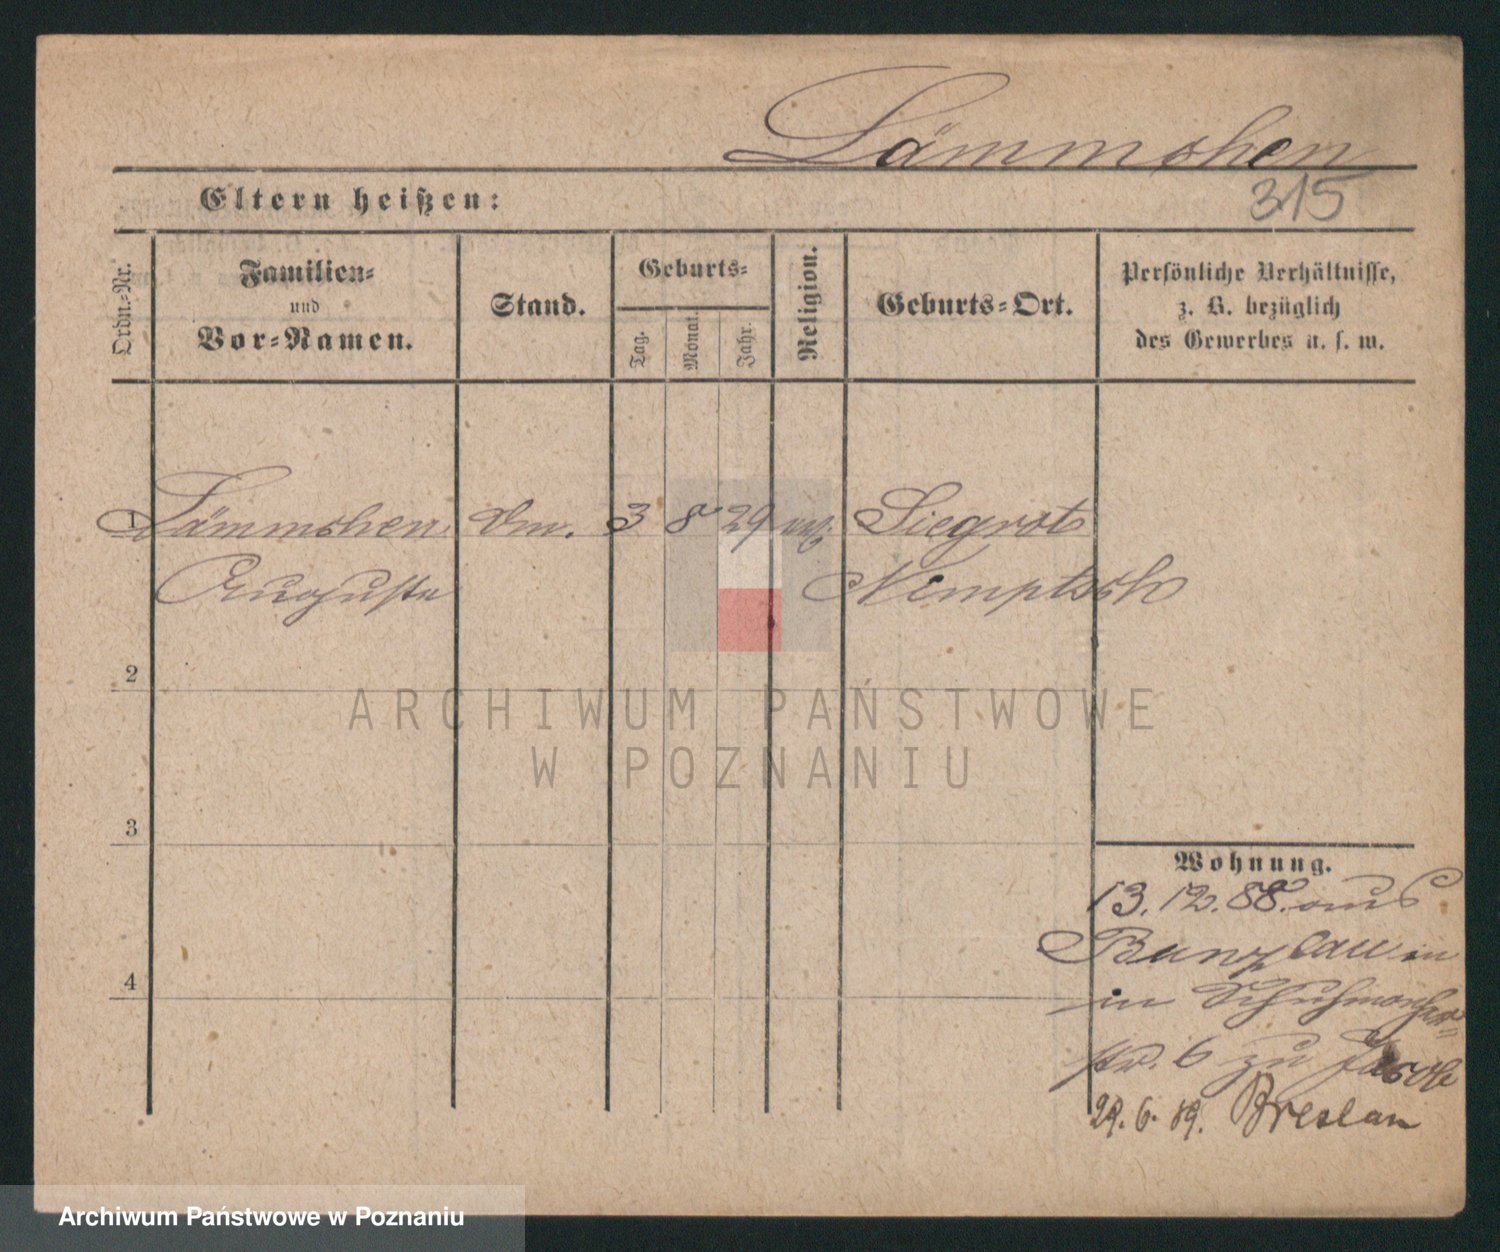 Lämmchen
315
Eltern heißen:
Ordn.-Nr.
Familien-
und
Vor-Namen.
Stand.
Geburts-
Tag.
Monat.
Jahr.
Religion.
Geburts-Ort.
Persönliche Verhältnisse,
z. B. bezüglich
des Gewerbes u. s. w.
1 Lämmchen 3 8 29 Siegrot
Auguste Nimptsch
2
3
4
Wohnung.
13. 12. 88. aus
Bunzlau in
in Schuhmacher-
str. 6 zu
29. 6. 89. Breslau
ARCHIWUM PAŃSTWOWE
W POZNANIU
Archiwum Państwowe w Poznaniu